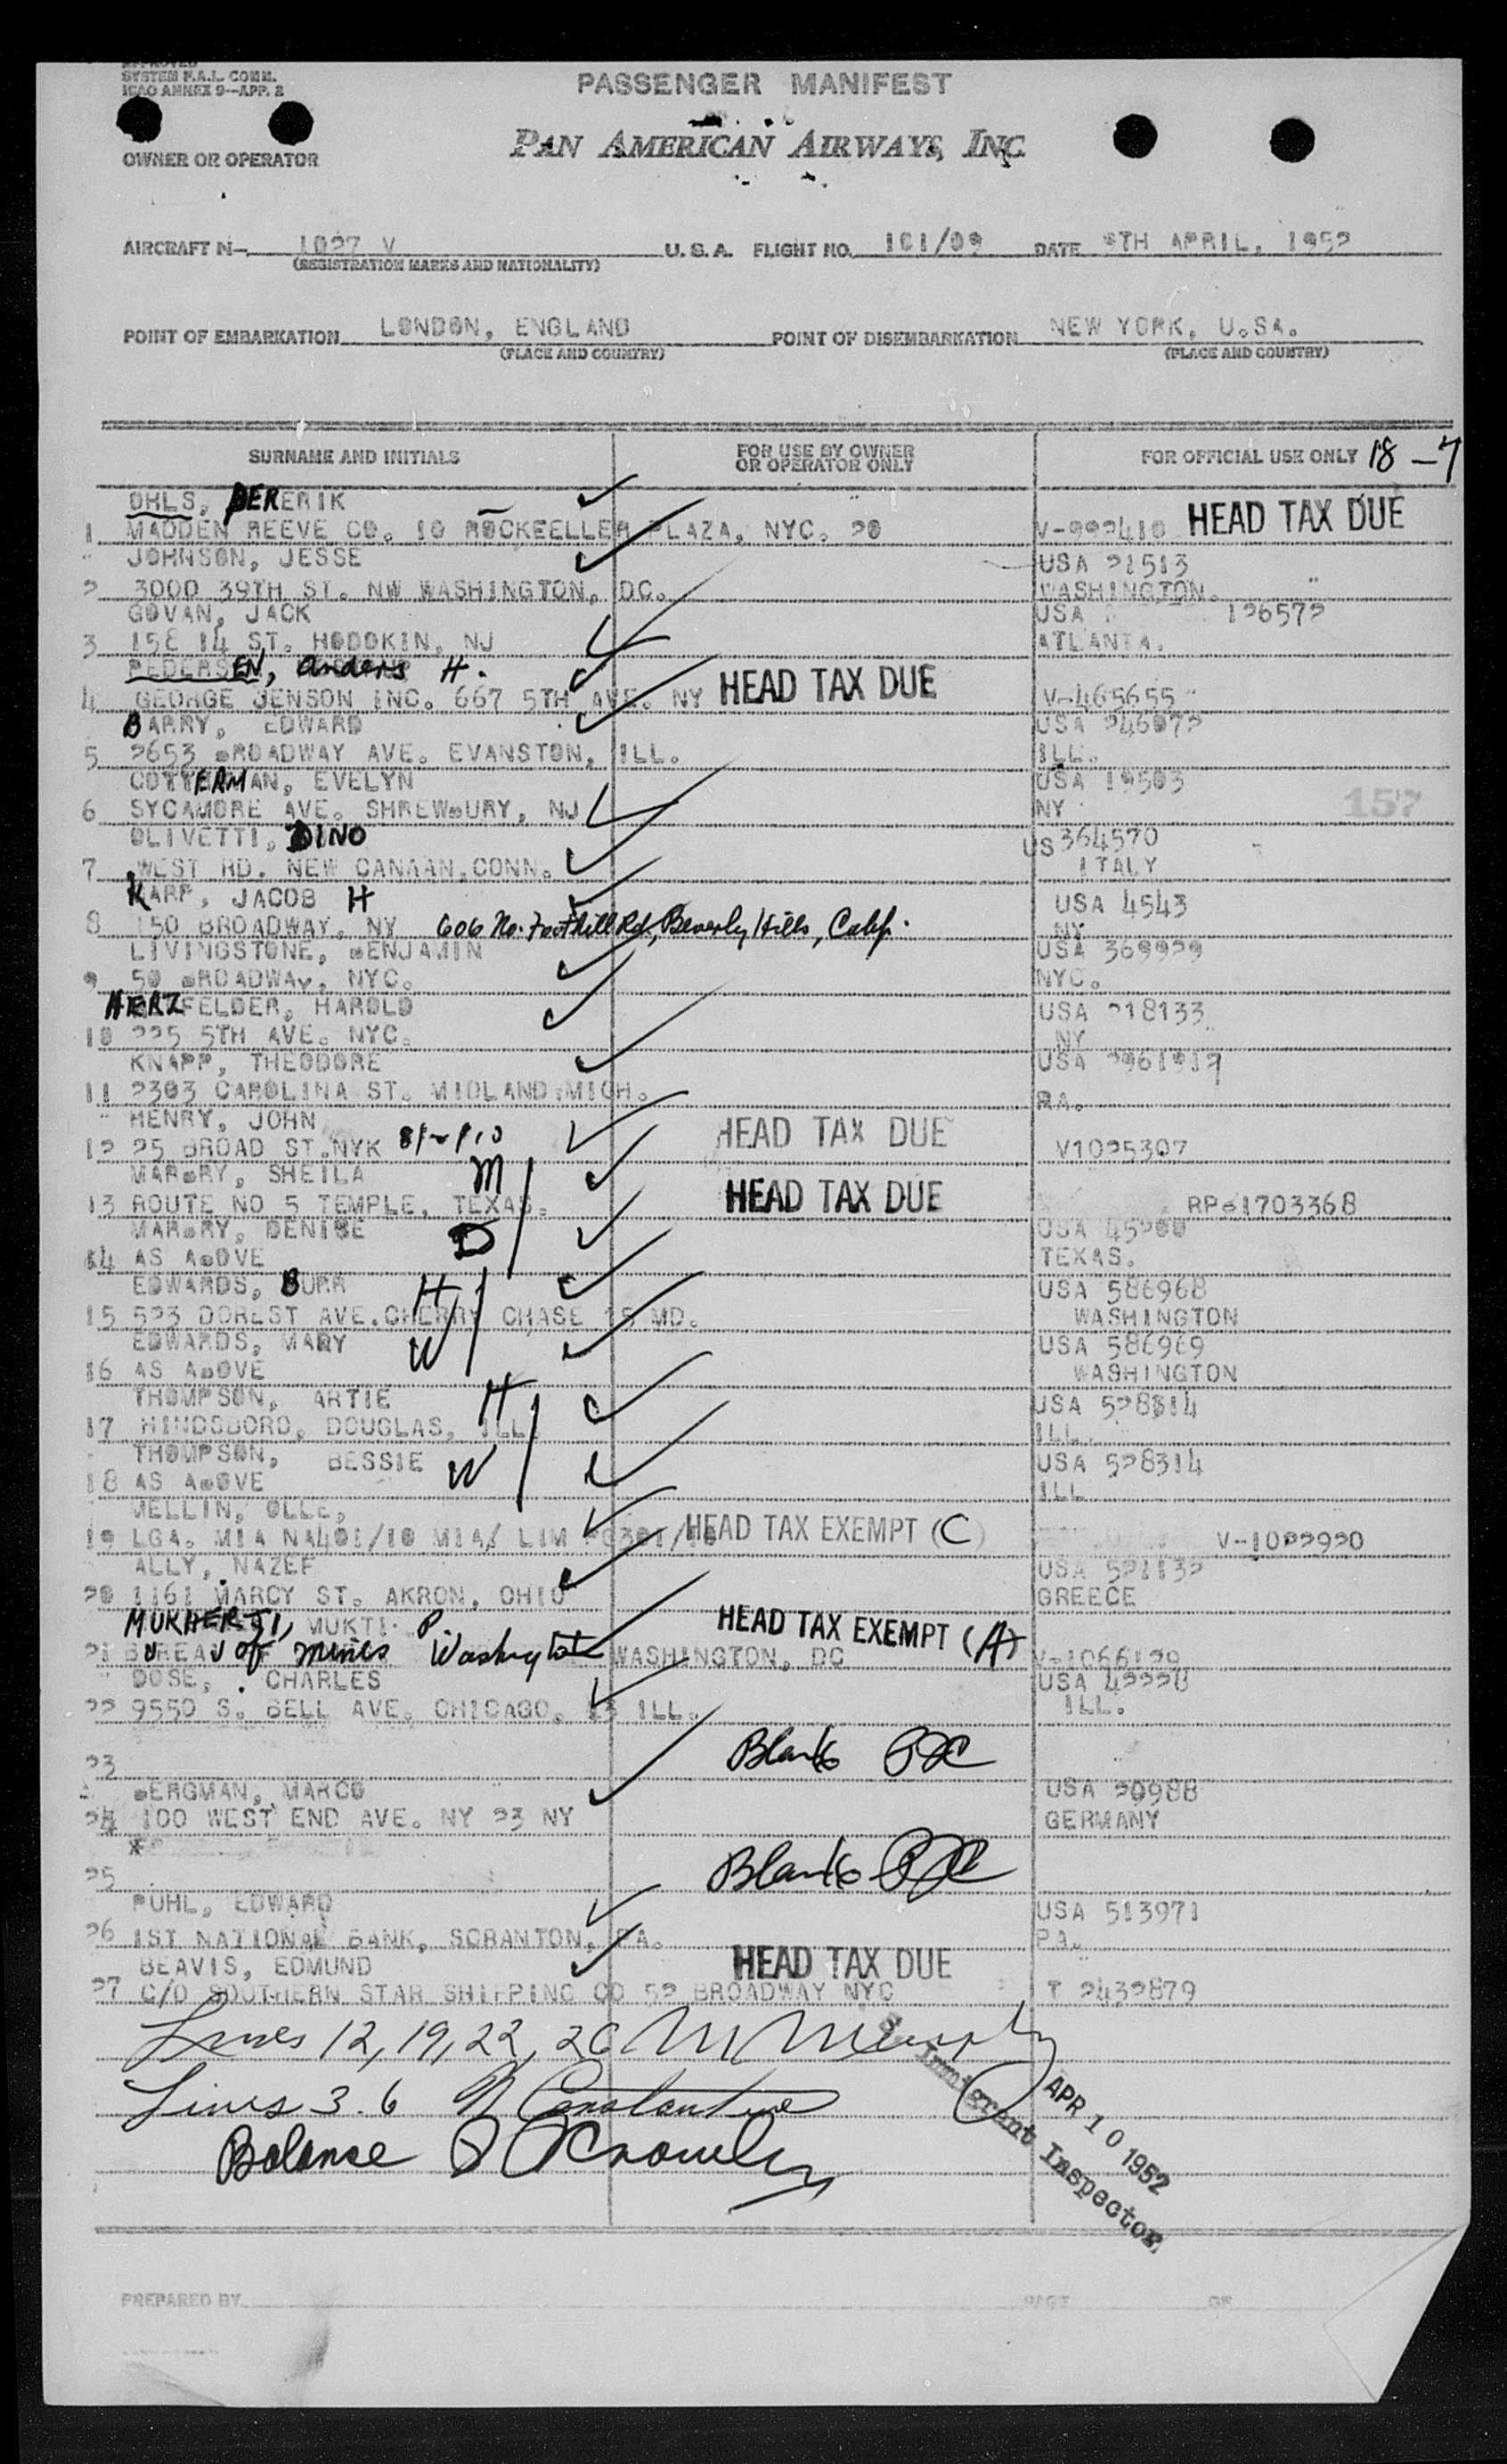 SYSTEM F.A.L. COMM.
ICAO ANNEX 9--APP. 2
PASSENGER MANIFEST
PAN AMERICAN AIRWAYS, INC.
OWNER OR OPERATOR
AIRCRAFT N— 1027 V U.S.A. FLIGHT NO. 101/09 DATE 9TH APRIL, 1952
(REGISTRATION MARKS AND NATIONALITY)
POINT OF EMBARKATION LONDON, ENGLAND POINT OF DISEMBARKATION NEW YORK, U.SA.
(PLACE AND COUNTRY) (PLACE AND COUNTRY)
SURNAME AND INITIALS FOR USE BY OWNER OR OPERATOR ONLY FOR OFFICIAL USE ONLY 18-7
OHLS, DERERIK
1 MADDEN REEVE CO. 10 ROCKEELLER PLAZA, NYC. 20 V-992410 HEAD TAX DUE
JOHNSON, JESSE USA 21513
2 3000 39TH ST. NW WASHINGTON, DC. WASHINGTON.
GOVAN, JACK USA 126572
3 158 14 ST. HODOKIN, NJ ATLANTA.
PEDERSEN, Anders H.
4 GEORGE JENSON INC. 667 5TH AVE. NY HEAD TAX DUE V-465655
BARRY, EDWARD USA 246072
5 2653 BROADWAY AVE. EVANSTON, ILL. ILL.
COTTERMAN, EVELYN USA 19503
6 SYCAMORE AVE. SHREWBURY, NJ NY 157
OLIVETTI, DINO US 364570
7 WEST RD. NEW CANAAN, CONN. ITALY
KARP, JACOB H USA 4543
8 150 BROADWAY, NY 606 No. Foothill Rd, Beverly Hills, Calif. NY
LIVINGSTONE, BENJAMIN USA 369929
9 50 BROADWAY, NYC. NYC.
HERZFELDER, HAROLD USA 218133
10 225 5TH AVE. NYC. NY
KNAPP, THEODORE USA
11 2303 CAROLINA ST. MIDLAND, MICH.
HENRY, JOHN
12 25 BROAD ST. NYK HEAD TAX DUE V1025307
MARBRY, SHEILA M
13 ROUTE NO 5 TEMPLE, TEXAS. HEAD TAX DUE RP 1703368
MARBRY, DENISE D USA 45200
14 AS ABOVE TEXAS.
EDWARDS, BURR H USA 586968
15 523 DOREST AVE. CHERRY CHASE 15 MD. WASHINGTON
EDWARDS, MARY W USA 586969
16 AS ABOVE WASHINGTON
THOMPSON, ARTIE H USA 528314
17 HINDSBORO, DOUGLAS, ILL ILL.
THOMPSON, BESSIE W USA 528314
18 AS ABOVE ILL
MELLIN, OLLE,
19 LGA. MIA NA401/10 MIA/ LIM HEAD TAX EXEMPT (C) V-1022920
ALLY, NAZEF USA 521132
20 1161 MARCY ST. AKRON, OHIO GREECE
MUKHERJI, MUKTI P HEAD TAX EXEMPT (A)
21 BUREAU of mines Washington WASHINGTON, DC V-1066129
DOSE, CHARLES USA 42228
22 9550 S. BELL AVE. CHICAGO, 43 ILL. ILL.
23 Blank
BERGMAN, MARCO USA 20988
24 100 WEST END AVE. NY 23 NY GERMANY
25 Blank
PUHL, EDWARD USA 513971
26 1ST NATIONAL BANK, SCRANTON, PA. PA.
BEAVIS, EDMUND HEAD TAX DUE
27 C/O SOUTHERN STAR SHIPPING CO 52 BROADWAY NYC T 2432879
Lines 12, 19, 22, 26 M Murphy
Lines 3. 6 N Constantine
Balance
Immigrant Inspector
APR 10 1952
PREPARED BY PAGE OF